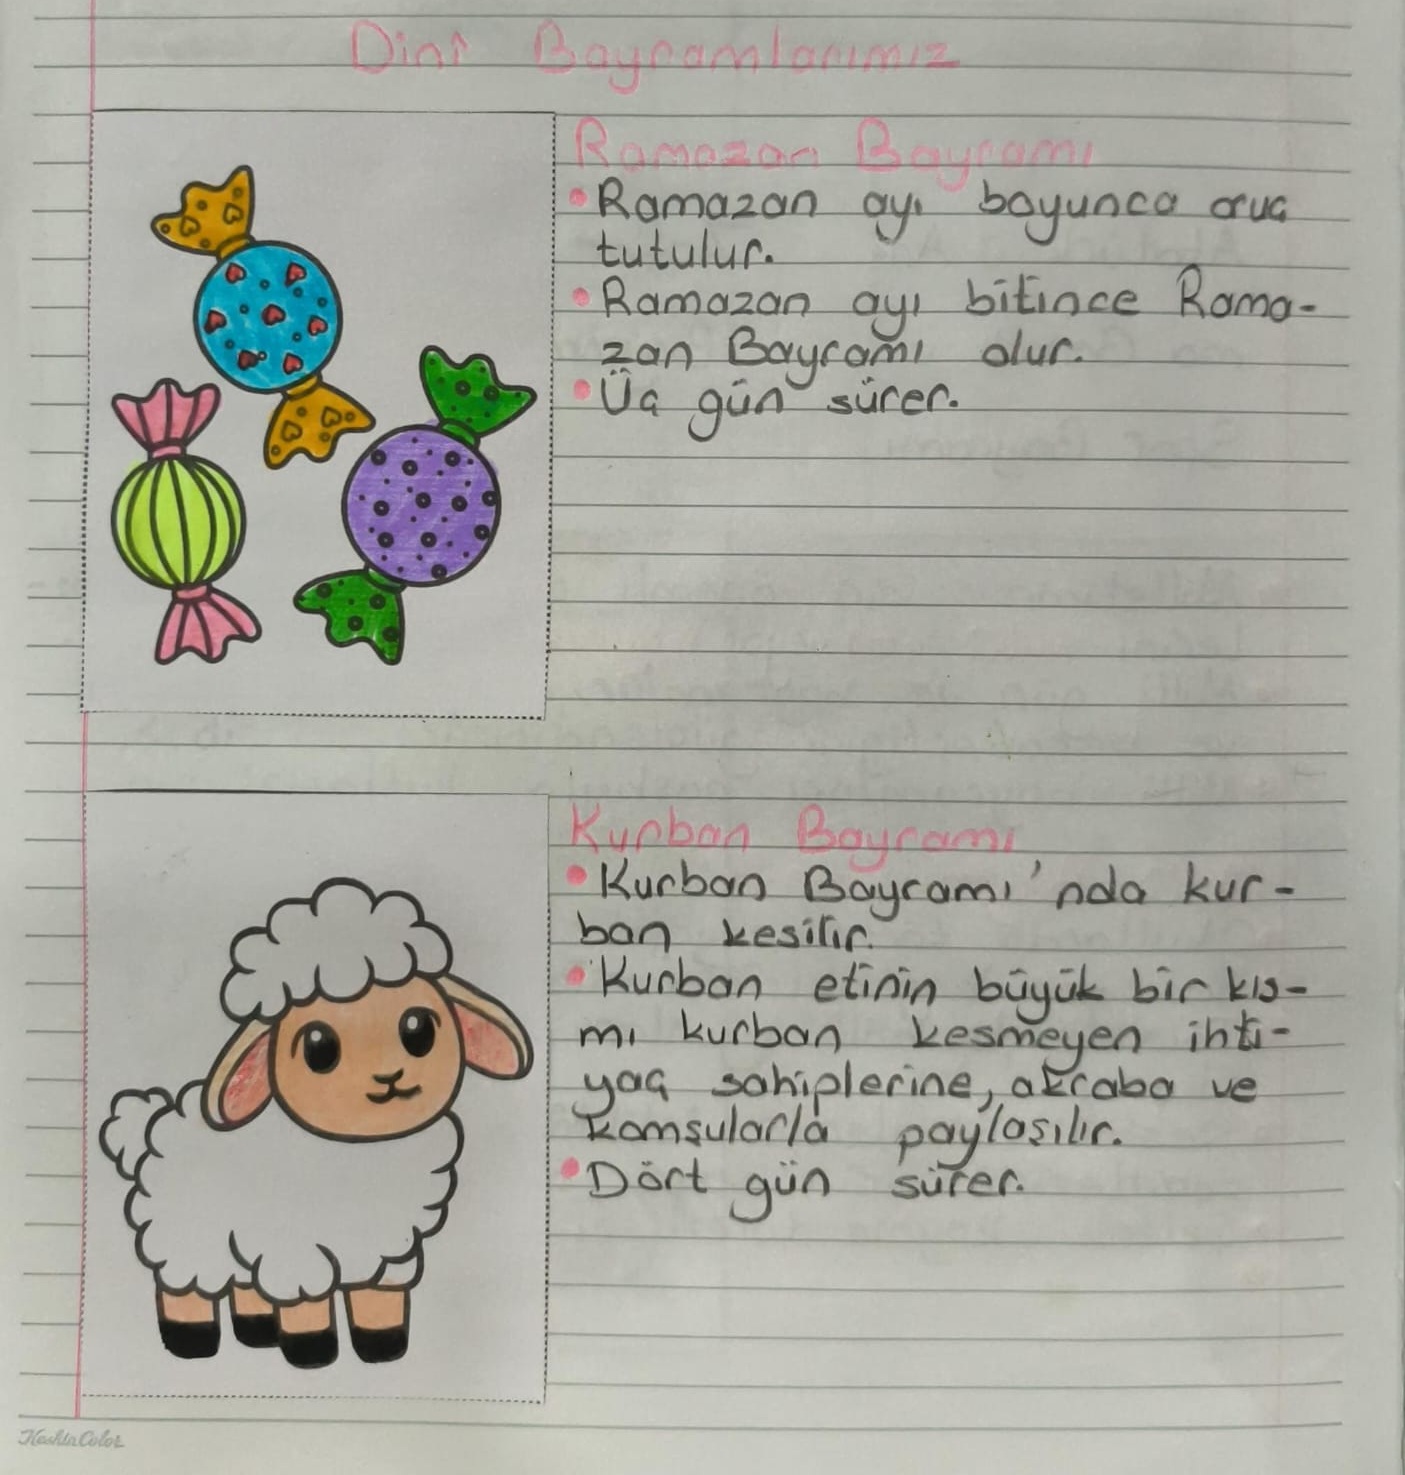 Dini Bayramlarımız
Ramazan Bayramı
• Ramazan ayı boyunca oruç
tutulur.
• Ramazan ayı bitince Rama-
zan Bayramı olur.
• Üç gün sürer.
Kurban Bayramı
• Kurban Bayramı'nda kur-
ban kesilir.
• Kurban etinin büyük bir kıs-
mı kurban kesmeyen ihti-
yaç sahiplerine, akraba ve
komşularla paylaşılır.
• Dört gün sürer.